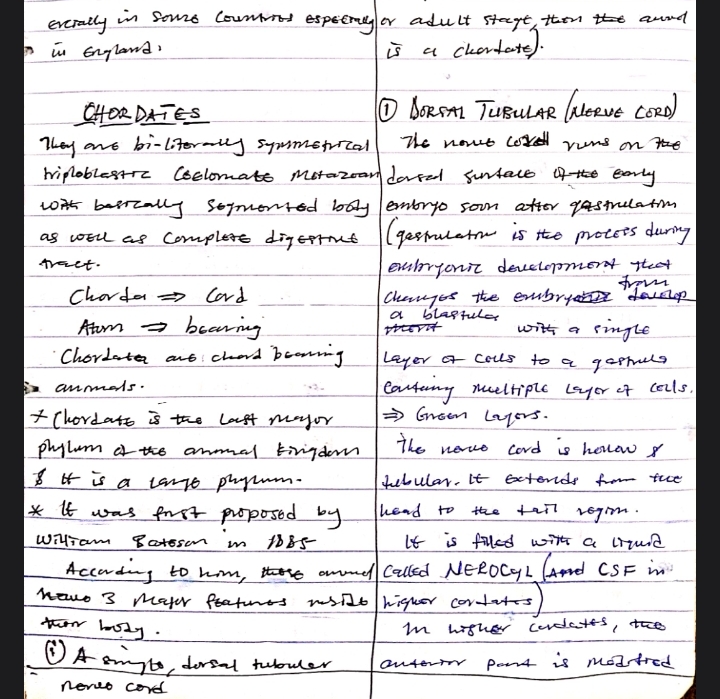 erally in some Countries especially
in England.
CHORDATES
They are bi-literally symmetrical
triploblastic Coelomate Metazoan
with basically segmented body
as well as Complete digestive
tract.
Chorda ⇒ Cord
Atum ⇒ bearing
Chordates are chord bearing
animals.
* Chordate is the last major
phylum of the animal kingdom
& It is a large phylum.
* It was first proposed by
William Bateson in 1885
According to him, these animal
have 3 Major features inside
their body.
(i) A single, dorsal tubular
nerve cord
or adult stage, then the animal
is a chordate).
① DORSAL TUBULAR (NERVE CORD)
The nerve cord runs on the
dorsal surface of the early
embryo soon after gastrulation
(gastrulation is the process during
embryonic development that
changes the embryo from
a blastula with a single
Layer of cells to a gastrula
Containg multiple Layer of cells.
⇒ Green Layers.
The nerve cord is hollow &
tubular. It extends from the
head to the tail region.
It is filled with a liquid
Called NEROCYL (And CSF in
higher cordates)
In higher cordates, the
anterior part is modified